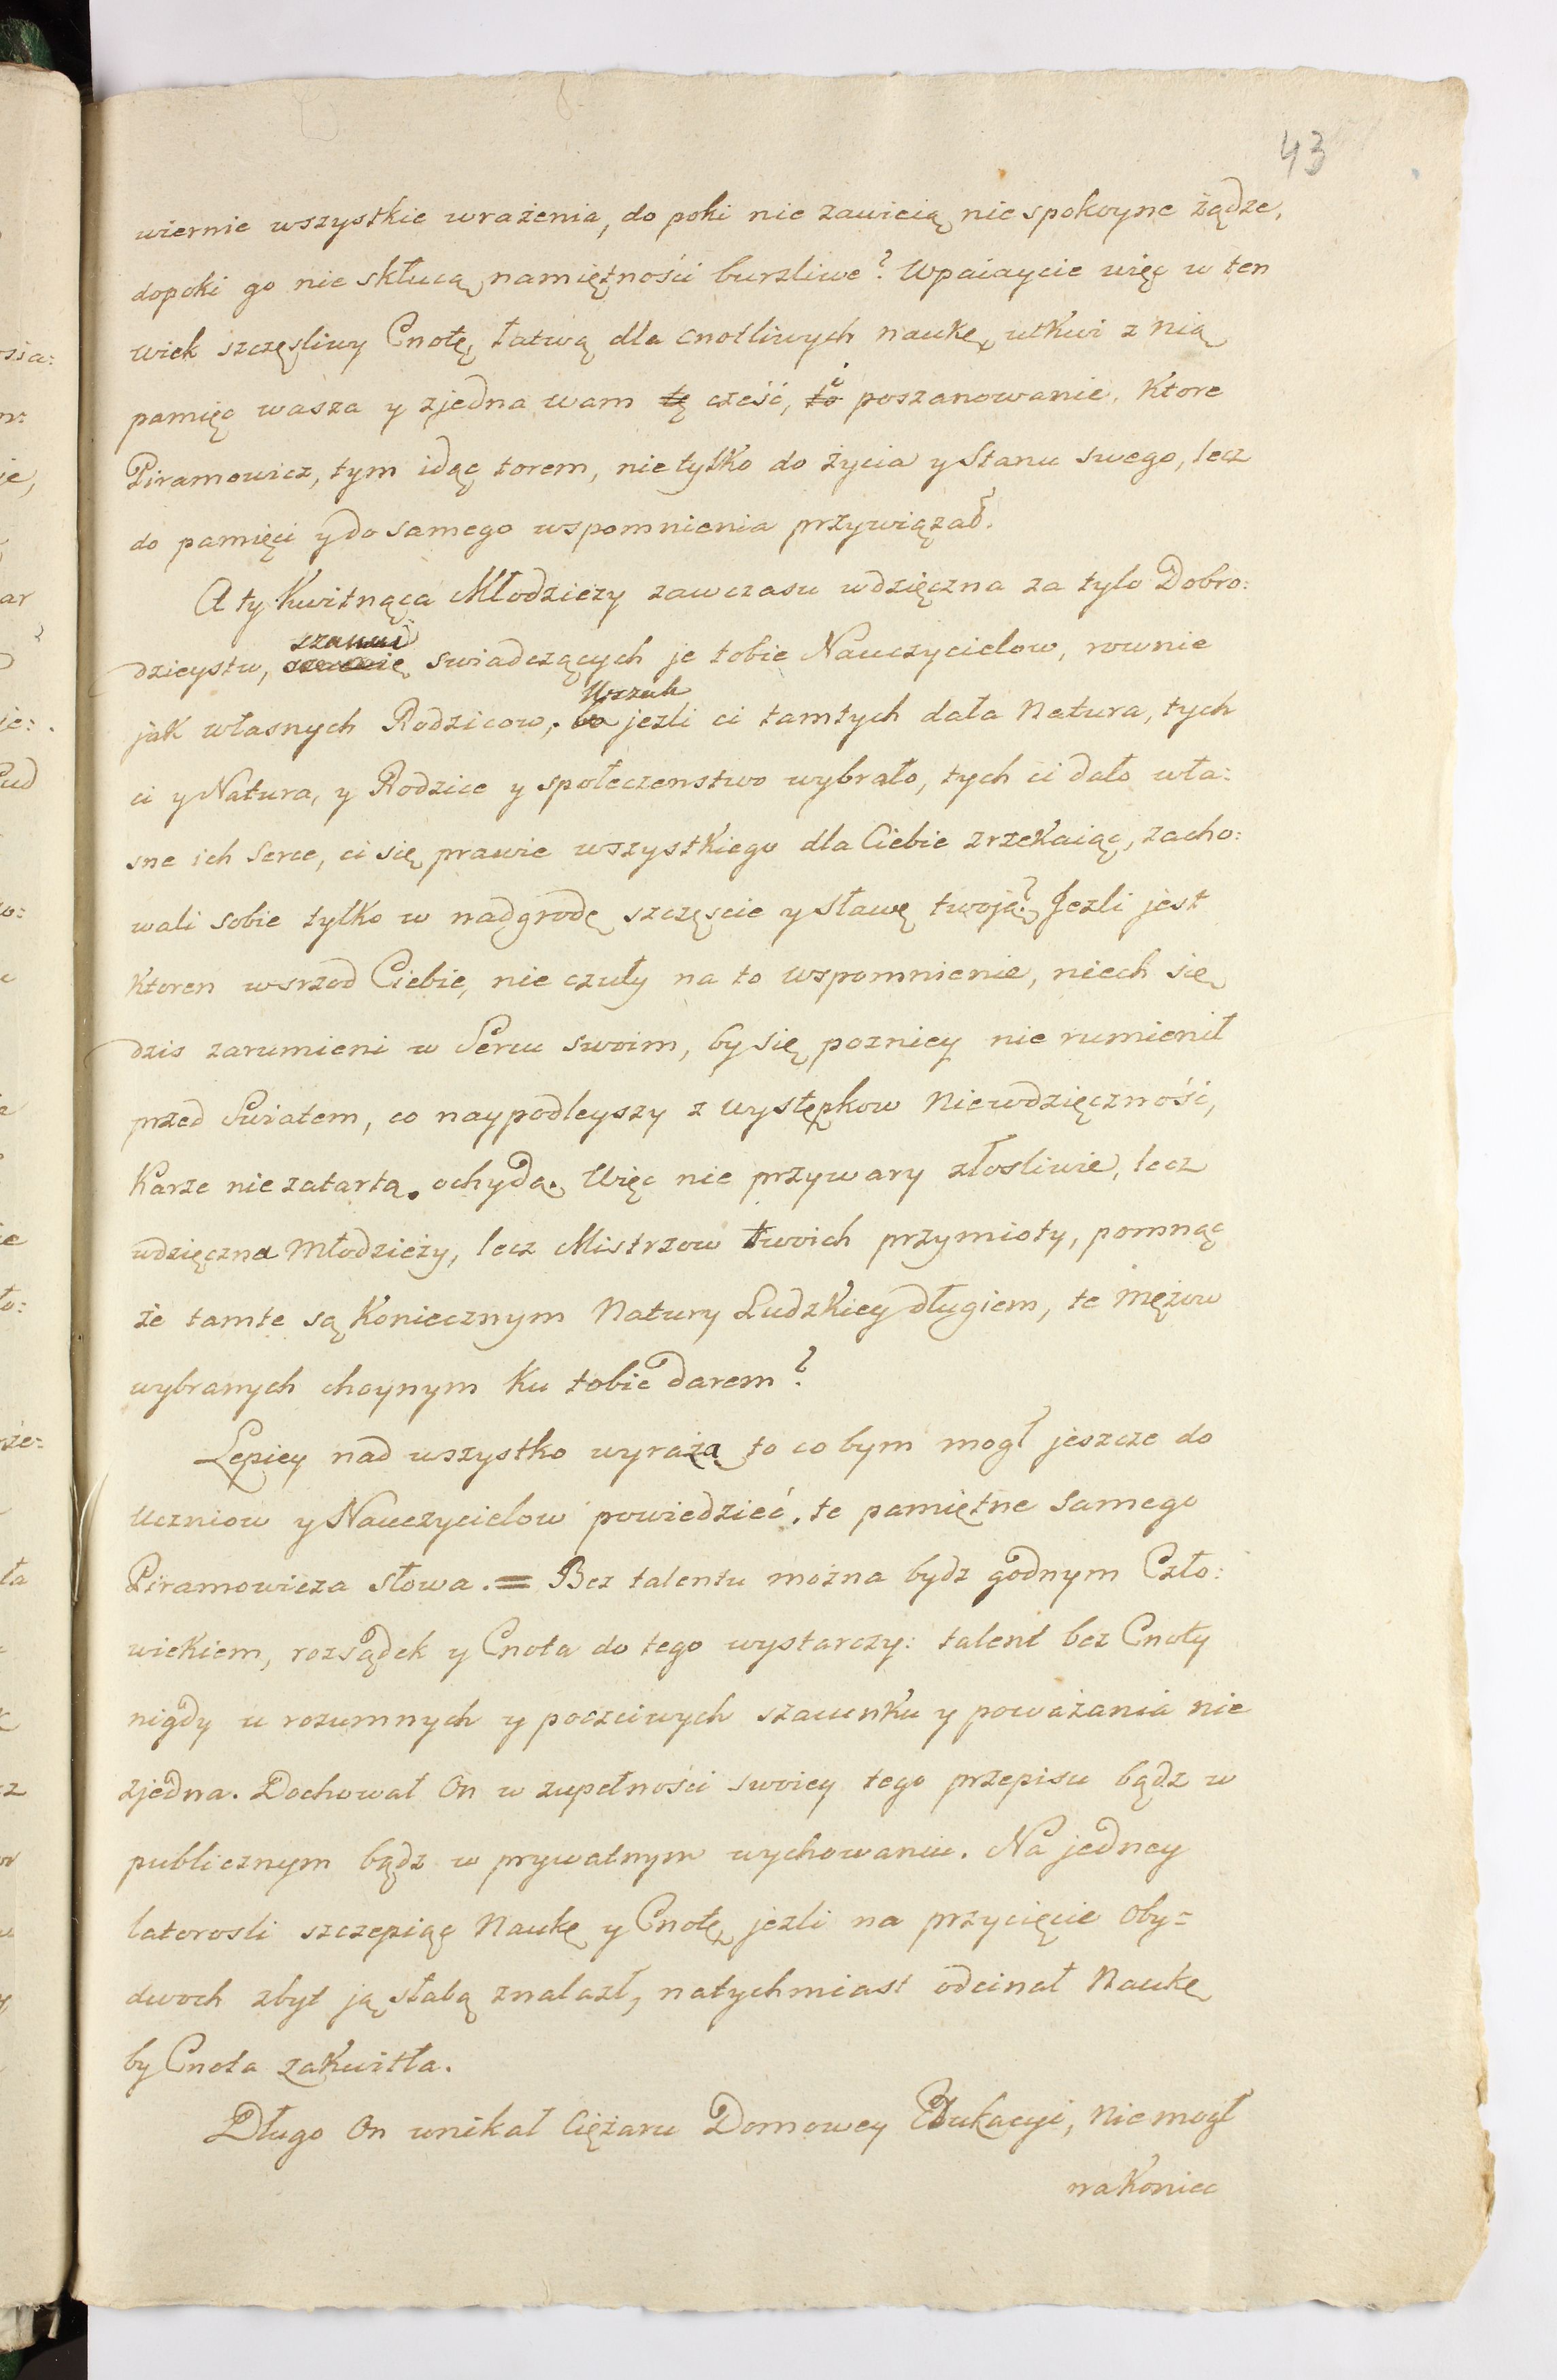 43
wiernie wszystkie wrażenia, do poki nie zawieią niespokoyne żądze,
dopoki go nie skłucą namiętności burzliwe? Wpaiaycie więc w ten
wiek szczęsliwy Cnotę, łatwą dla cnotliwych naukę, utkwi z nią
pamięc wasza y zjedna wam tę cześć, to i poszanowanie, Ktore
Piramowicz, tym idąc torem, nie tylko do życia y Stanu swego, lecz
do pamięci y do samego wspomnienia przywiązał.
A ty Kwitnąca Młodzieży zawczasu wdzięczna za tylo Dobro:
szanuj
dzieystw, swiadczących je tobie Nauczycielow, rownie
Wszak
jak własnych Rodzicow, bo jezli ci tamtych dała Natura, tych
ci y Natura, y Rodzice y społeczenstwo wybrało, tych ci dało wła:
sne ich Serce, ci się prawie wszystkiego dla Ciebie zrzekaiąc, zacho:
wali sobie tylko w nadgrodę szczęscie y sławę twoję? Jezli jest
Ktoren wsrzod Ciebie, nie czuły na to wspomnienie, niech się
dzis zarumieni w Sercu swoim, by się pozniey nie rumienił
przed Swiatem, co naypodleyszy z występkow Niewdzięczność,
Karze niezatartą ochydą. Więc nie przywary złosliwie, lecz
wdzięczna Młodzieży, lecz Mistrzow twoich przymioty, pomnąc
że tamte są Koniecznym Natury Ludzkiey długiem, te mężow
wybranych choynym Ku tobie darem?
Lepiey nad wszystko wyrażą to co bym mogł jeszcze do
Uczniow y Nauczycielow powiedzieć, te pamiętne samego
Piramowicza słowa. = Bez talentu można bydz godnym Czło:
wiekiem, rozsądek y Cnota do tego wystarczy: talent bez Cnoty
nigdy u rozumnych y poczciwych szacunku y poważania nie
zjedna. Dochował On w zupełności swoiey tego przepisu bądz w
publicznym bądz w prywatnym wychowaniu. Na jedney
latorosli szczepiąc Naukę y Cnotę, jezli na przycięcie Oby=
dwoch zbyt ją słabą znalazł, natychmiast odcinał Naukę
by Cnota zakwitła.
Długo On unikał Ciężaru Domowey Edukacyi, nie mogł
nakoniec